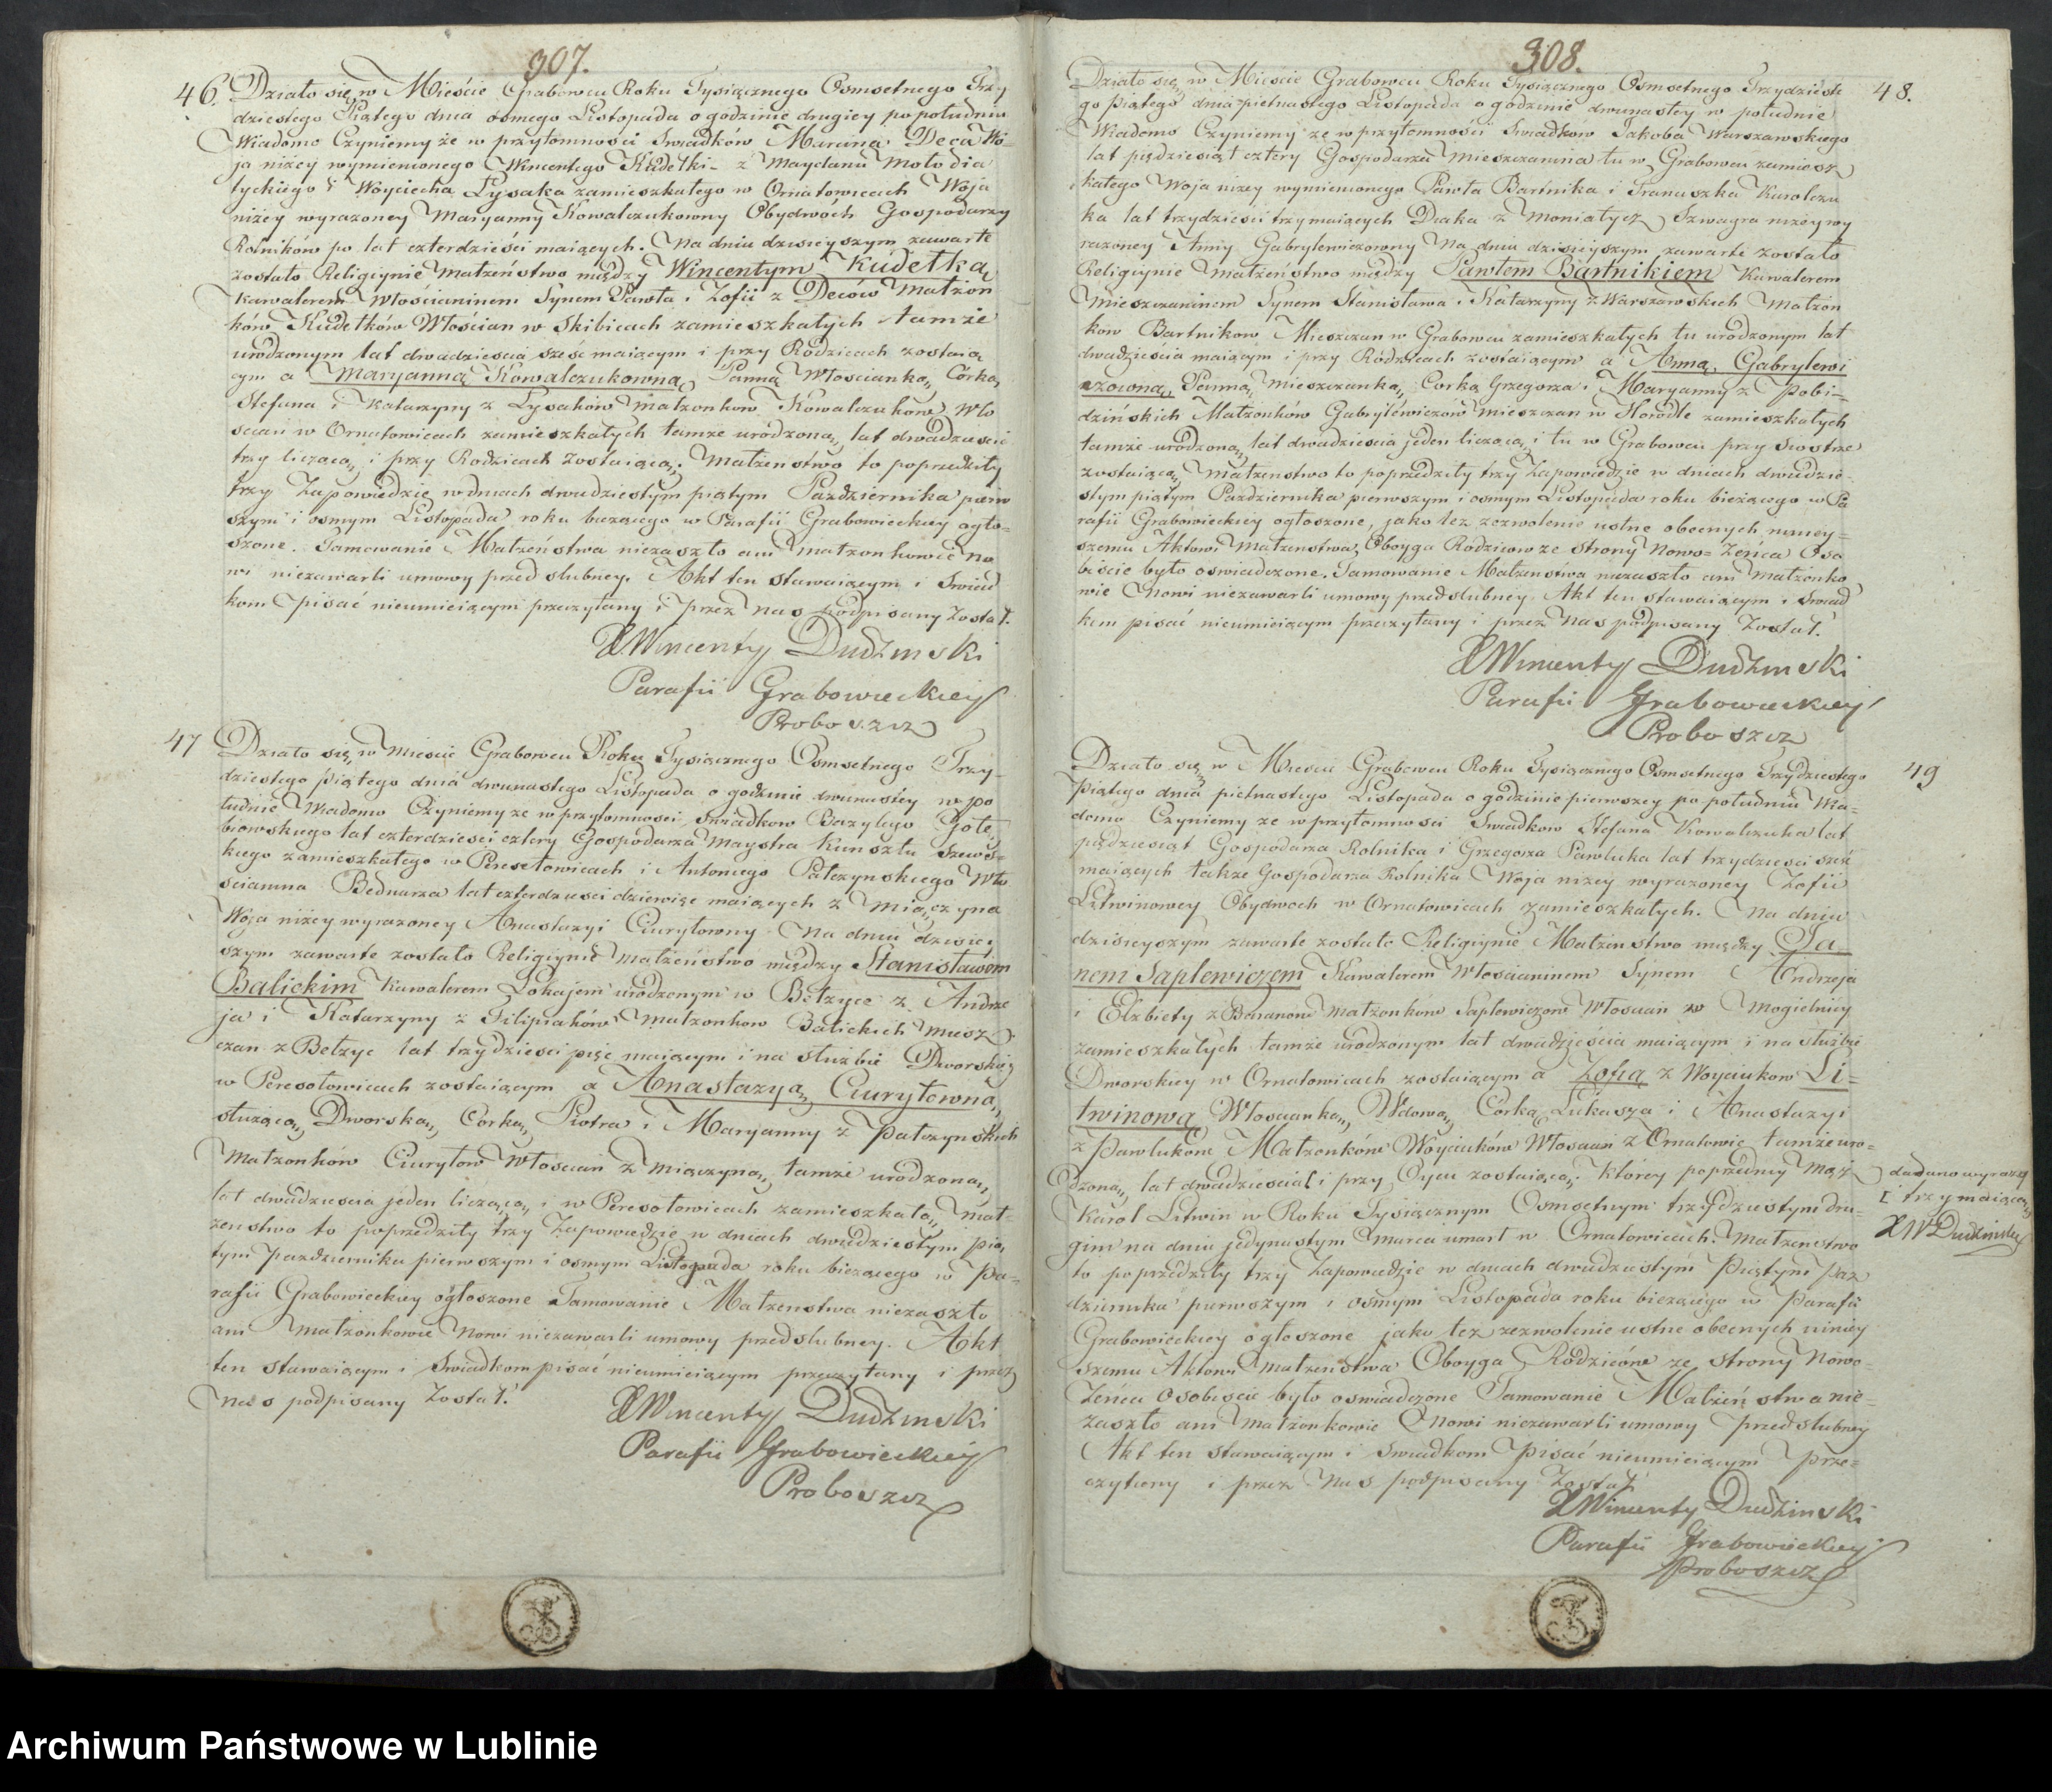 307.
46. Działo się w Mieście Grabowcu Roku Tysiącznego Osmsetnego Trzy
dziestego Piątego dnia ósmego Listopada o godzinie drugiey po południu
Wiadomo Czyniemy że w przytomności Swiadków Marcina Deca Wu-
ja niżey wymienionego Wincentego Kudełki z Maydanu
i Woyciecha Łysaka zamieszkałego w Ornatowicach Wuja
niżey wyrażoney Maryanny Kowalczukowny Obydwóch Gospodarzy
Rolników po lat czterdzieści maiących. Na dniu dzisieyszym zawarte
zostało Religiynie Małżeństwo między Wincentym Kudełką
Kawalerem Włościaninem Synem Pawła i Zofii z Deców Małżon
ków Kudełków Włościan w Skibicach zamieszkałych tamże
urodzonym lat dwadzieścia sześć maiącym i przy Rodzicach zostaią
cym a Maryanną Kowalczukowną Panną Włościanką, Córką
Stefana i Katarzyny z Łysaków Małżonków Kowalczuków Wło
scian w Ornatowicach zamieszkałych tamże urodzoną, lat dwadzieścia
trzy liczącą, i przy Rodzicach zostaiącą. Małżeństwo to poprzedziły
trzy Zapowiedzie w dniach dwudziestym piątym Października pierw
szym i osmym Listopada roku bieżącego w Parafii Grabowieckiey ogło-
szone. Tamowanie Małżeństwa niezaszło ani Małżonkowie No
wi niezawarli umowy przedslubney. Akt ten stawaiącym i Swiad
kom pisać nieumieiącym przeczytany i przez nas podpisany Został.
X Wincenty Dudzinski
Parafii Grabowieckiey
Proboszcz
47 Działo się w Mieście Grabowcu Roku Tysiącznego Osmsetnego Trzy-
dziestego piątego dnia dwunastego Listopada o godzinie dwunastey w po
łudnie Wiadomo Czyniemy że w przytomności Swiadków Bazylego Gołę
biowskiego lat czterdzieści cztery Gospodarza Maystra Kunsztu Szews-
kiego zamieszkałego w Peresołowicach i Antoniego Pałczynskiego Wło
scianina Bednarza lat czterdzieści dziewięć maiących z Miączyna
Wuja niżey wyrażoney Anastazyi Ciuryłowny Na dniu dzisiey
szym zawarte zostało Religiynie Małżeństwo między Stanisławem
Balickim Kawalerem Lokajem urodzonym w Bełżyce z Andrze
ja i Katarzyny z Filipiaków Małżonków Balickich Miesz
czan z Bełżyc lat trzydzieści pięć maiącym i na służbie Dworskiey
w Peresołowicach zostaiącym a Anastazyą Ciuryłowną,
służącą Dworską, Córką Piotra i Maryanny z Pałczynskich
Małżonków Ciuryłow Włościan z Miączyna, tamże urodzoną,
lat dwadzieścia jeden liczącą, i w Peresołowicach zamieszkałą, Mał-
żeństwo to poprzedziły trzy Zapowiedzie w dniach dwudziestym pią
tym Października pierwszym i osmym Listopada roku bieżącego w Pa-
rafii Grabowieckiey ogłoszone Tamowanie Małżeństwa niezaszło
ani Małżonkowie Nowi niezawarli umowy przedslubney. Akt
ten stawaiącym i Swiadkom pisać nieumieiącym przeczytany i przez
Nas podpisany Został.
X Wincenty Dudzinski
Parafii Grabowieckiey
Proboszcz
308.
48. Działo się w Mieście Grabowcu Roku Tysiącznego Osmsetnego Trzydzieste
go piątego dnia pietnastego Listopada o godzinie dwunastey w południe
Wiadomo Czyniemy że w przytomności Swiadków Jakóba Warszawskiego
lat pięćdziesiąt cztery Gospodarza Mieszczanina tu w Grabowcu zamiesz
kałego Wuja niżey wymienionego Pawła Bartnika i Franciszka Karolczu
ka lat trzydzieści trzy maiących Diaka z Moniatycz Szwagra niżey wy
rażoney Anny Gabrylewiczowny Na dniu dzisieyszym zawarte zostało
Religiynie Małżeństwo między Pawłem Bartnikiem Kawalerem
Mieszczaninem Synem Stanisława i Katarzyny z Warszawskich Małżon
ków Bartnikow Mieszczan w Grabowcu zamieszkałych tu urodzonym lat
dwadzieścia maiącym i przy Rodzicach zostaiącym a Anną Gabrylewi
czowną, Panną, Mieszczanką, Corką Grzegorza i Maryanny z Pobi-
dzińskich Małżonków Gabrylewiczów Mieszczan w Horodle zamieszkałych
tamże urodzoną, lat dwadzieścia jeden liczącą, i tu w Grabowcu przy Siostrze
zostaiącą, Małżeństwo to poprzedziły trzy Zapowiedzie w dniach dwudzie-
stym piątym Października pierwszym i osmym Listopada roku bieżącego w Pa
rafii Grabowieckiey ogłoszone, jako też zezwolenie ustne obecnych niniey-
szemu Aktowi Małżeństwa, Oboyga Rodziców ze strony Nowo=Żeńca Oso
biście było oswiadczone. Tamowanie Małżeństwa niezaszło ani Małżonko
wie Nowi niezawarli umowy przedslubney Akt ten stawaiącym i Swiad
kom pisać nieumieiącym przeczytany i przez Nas podpisany Został.
X Wincenty Dudzinski
Parafii Grabowieckiey
Proboszcz
49 Działo się w Mieście Grabowcu Roku Tysiącznego Osmsetnego Trzydziestego
Piątego dnia pietnastego Listopada o godzinie pierwszey po południu Wia-
domo Czyniemy że w przytomności Swiadków Stefana Kowalczuka lat
pięćdziesiąt Gospodarza Rolnika i Grzegorza Pawluka lat trzydzieści sześć
maiących także Gospodarza Rolnika Wuja niżey wyrażoney Zofii
Litwinowey Obydwoch w Ornatowicach zamieszkałych. Na dniu
dzisieyszym zawarte zostało Religiynie Małżeństwo między Ja=
nem Saplewiczem Kawalerem Włościaninem Synem Andrzeja
i Elżbiety z Baranow Małżonków Saplewiczow Włościan w Mogielnicy
zamieszkałych tamże urodzonym lat dwadzieścia maiącym i na służbie
Dworskiey w Ornatowicach zostaiącym a Zofią z Woyciuków Li=
twinową Włościanką, Wdową, Córką Łukasza i Anastazyi
z Pawluków Małżonków Woyciuków Włościan z Ornatowic tamże uro-
dzoną, lat dwadzieścia [ i przy Oycu zostaiącą. Którey poprzedniy Mąż
Karol Litwin w Roku Tysiącznym Osmsetnym trzydziestym dru-
gim na dniu jedynastym Marca umarł w Ornatowicach. Małżeństwo
to poprzedziły trzy Zapowiedzie w dniach dwudziestym Piątym Paź
dziernika pierwszym i osmym Listopada roku bieżącego w Parafii
Grabowieckiey ogłoszone jako też zezwolenie ustne obecnych niniey
szemu Aktowi Małżeństwa Oboyga Rodziców ze strony Nowo-
Żeńca Osobiscie było oswiadczone Tamowanie Małżeństwa nie-
zaszło ani Małżonkowie Nowi niezawarli umowy Przedslubney
Akt ten stawaiącym i Swiadkom Pisać nieumieiącym Prze-
czytany i przez Nas podpisany Został
X Wincenty Dudzinski
Parafii Grabowieckiey
Proboszcz
dodano wyrazy
[ trzy maiącą
X W Dudzinski
Archiwum Państwowe w Lublinie